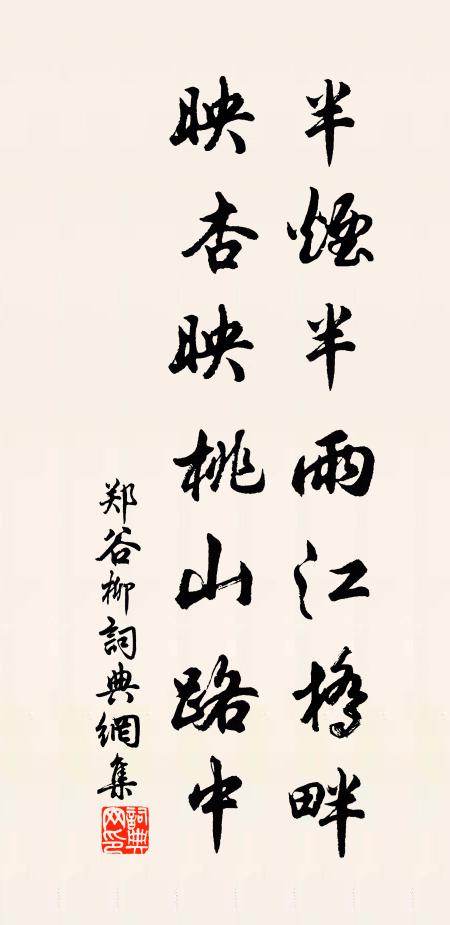 半煙半雨江橋畔
映杏映桃山路中
郑谷柳詞典網集
詞典網印